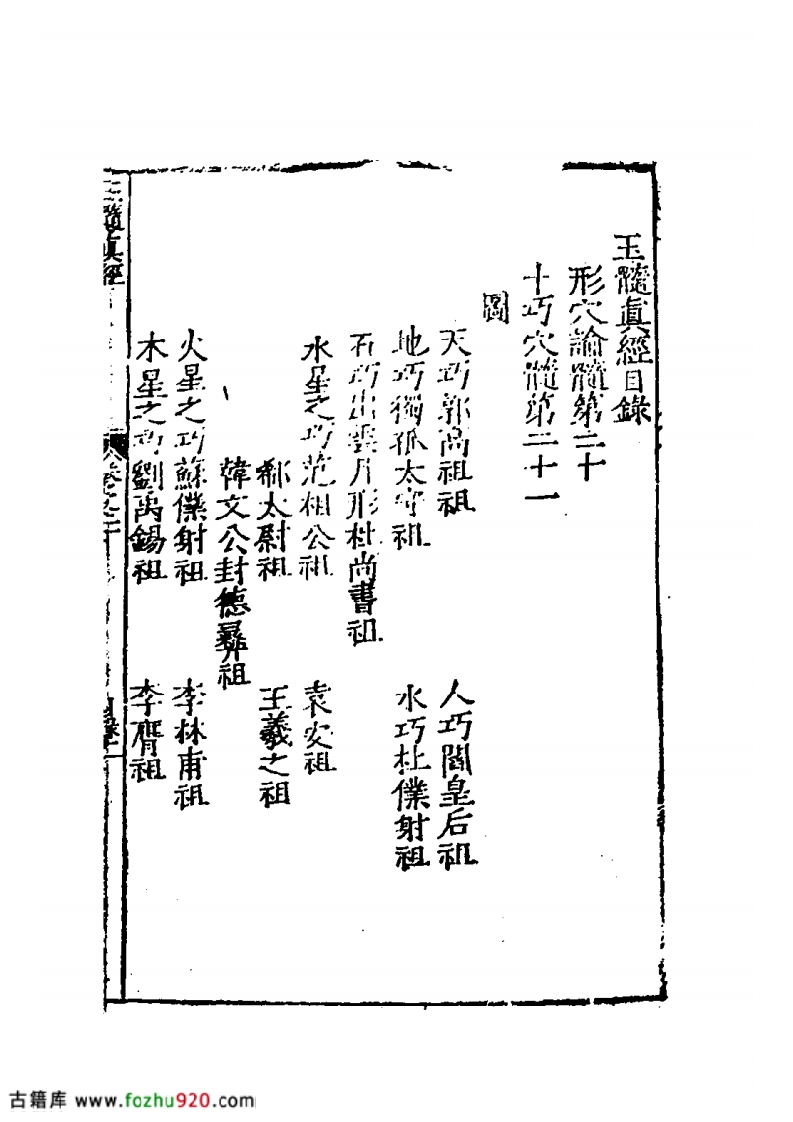 玉髓眞經目錄
形穴論髓第二十
十巧穴髓第二十一
圖
天巧郭高祖祖
人巧閻皇后祖
地巧獨孤太守祖
水巧杜僕射祖
石巧出雲月形杜尚書祖
水星之巧范相公祖
袁安祖
郗太尉祖
王羲之祖
韓文公封德彞祖
火星之巧蘇僕射祖
李林甫祖
木星之巧劉禹錫祖
李膺祖
玉髓眞經
卷之二十
古籍库 www.fozhu920.com